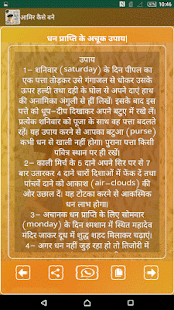 10:46
आमिर कैसे बने
धन प्राप्ति के अचूक उपाय|
उपाय
1– शनिवार (saturday) के दिन पीपल का
एक पत्ता तोडकर उसे गंगाजल से धोकर उसके
ऊपर हल्दी तथा दही के घोल से अपने दाएं हाथ
की अनामिका अंगुली से ह्रीं लिखें। इसके बाद इस
पत्ते को धूप-दीप दिखाकर अपने बटुए में रखे लें।
प्रत्येक शनिवार को पूजा के साथ वह पत्ता बदलते
रहें। यह उपाय करने से आपका बटुआ (purse)
कभी धन से खाली नहीं होगा। पुराना पत्ता किसी
पवित्र स्थान पर ही रखें।
2– काली मिर्च के 5 दाने अपने सिर पर से 7
बार उतारकर 4 दाने चारों दिशाओं में फेंक दें तथा
पांचवें दाने को आकाश (air-clouds) की
ओर उछाल दें। यह टोटका करने से आकस्मिक
धन लाभ होगा।
3– अचानक धन प्राप्ति के लिए सोमवार
(monday) के दिन श्मशान में स्थित महादेव
मंदिर जाकर दूध में शुद्ध शहद मिलाकर चढ़ाएं।
4– अगर धन नहीं जुड़ रहा हो तो तिजोरी में